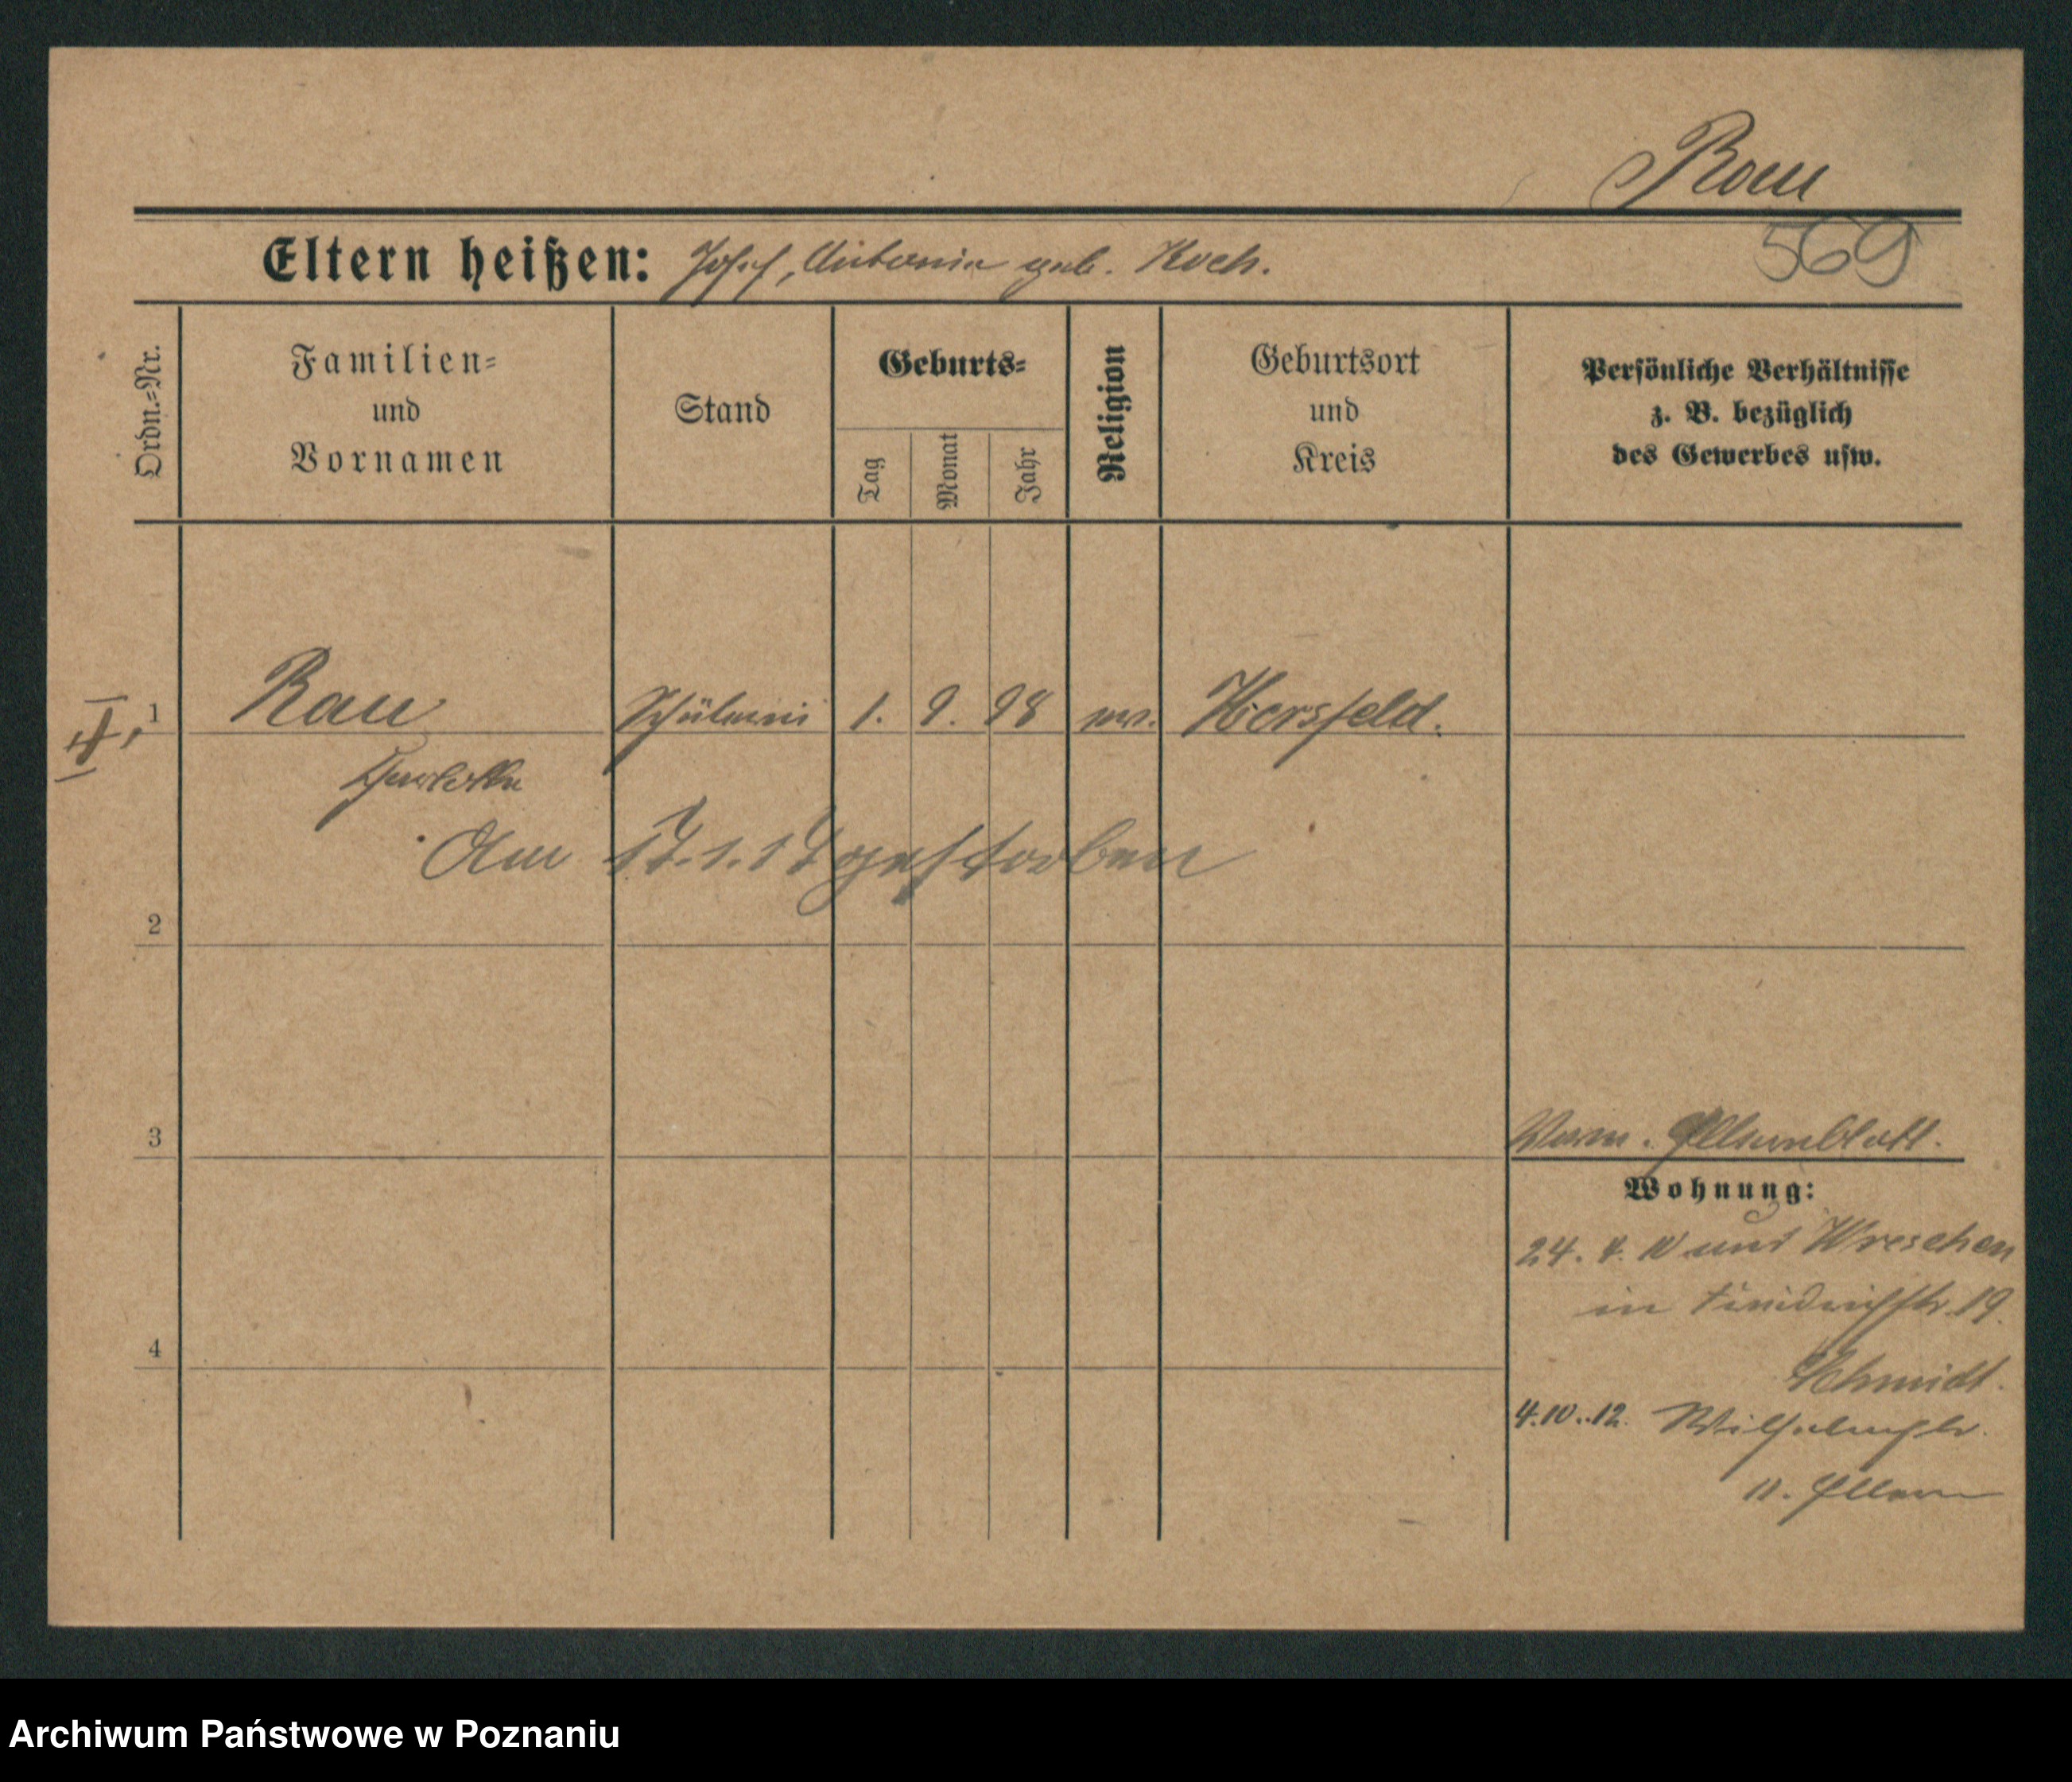 Rau
569
Eltern heißen: Josef, Antonie geb. Koch.
Ordn.=Nr.
Familien=
und
Vornamen
Stand
Geburts=
Tag
Monat
Jahr
Religion
Geburtsort
und
Kreis
Persönliche Verhältnisse
z. B. bezüglich
des Gewerbes usw.
1 Rau Schülerin 1. 9. 98 ev. Hersfeld.
Charlotte
Am gestorben
2
3
Elternblatt.
Wohnung:
24. 4. 10 aus Wreschen
in Friedrichstr. 19.
Schmidt.
4
4.10..12. Wilhelmstr.
11. Eltern
Archiwum Państwowe w Poznaniu